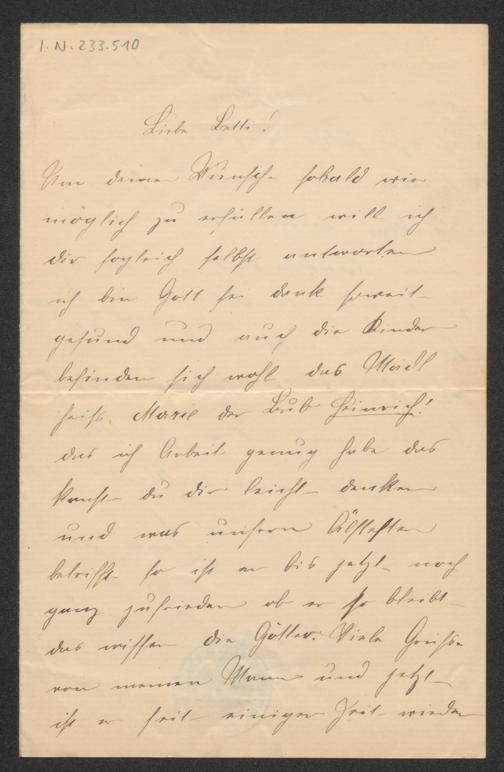 I.N. 233.510
Liebe Betti!
Um deinen Wunsch sobald wie
möglich zu erfüllen will ich
dir sogleich selbst antworten
ich bin Gott sei dank soweit
gesund und auch die Kinder
befinden sich wohl das Mädl
heißt Marie der Bub Heinrich!
das ich Arbeit genug habe das
kanst du dir leicht denken
und was unsern Ältesten
betrifft so ist er bis jetzt noch
ganz zufrieden ob er so bleibt
das wissen die Götter. Viele Grüße
von meinen Mann und jetzt
ist er seit einiger Zeit wieder